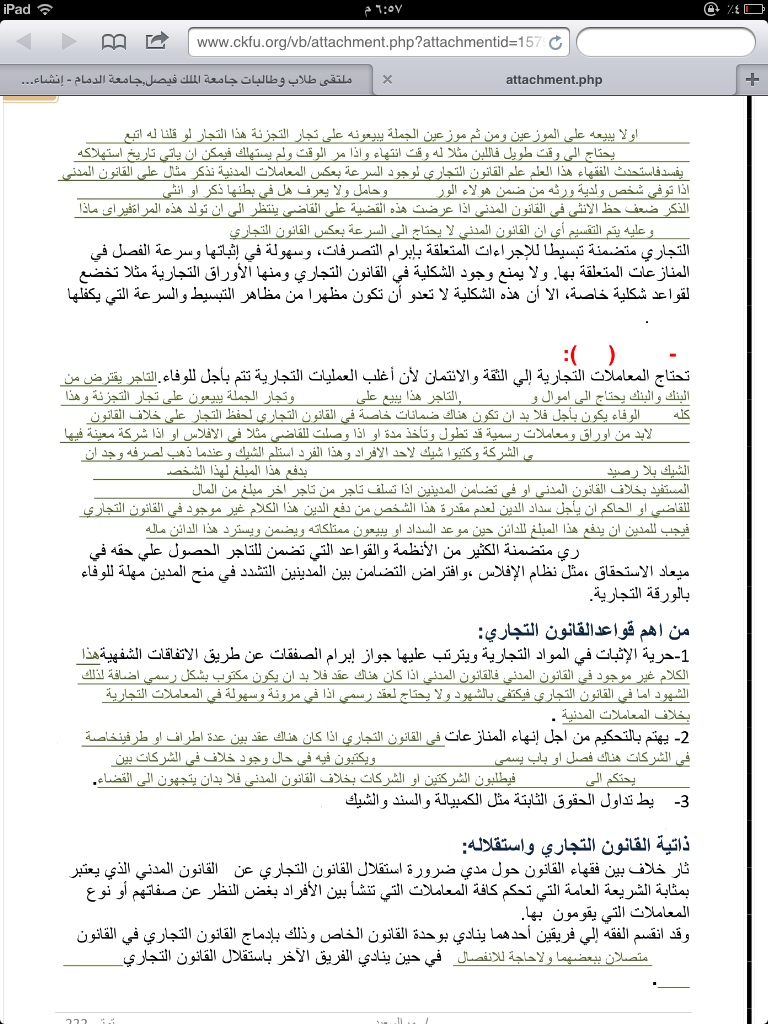 iPad ٦:٥٧ م ٪٤
www.ckfu.org/vb/attachment.php?attachmentid=157
ملتقى طلاب وطالبات جامعة الملك فيصل,جامعة الدمام - إنشاء...
attachment.php
اولا يبيعه على الموزعين ومن ثم موزعين الجملة يبيعونه على تجار التجزئة هذا التجار لو قلنا له اتبع
يحتاج الى وقت طويل فاللبن مثلا له وقت انتهاء واذا مر الوقت ولم يستهلك فيمكن ان ياتي تاريخ استهلاكه
يفسدفاستحدث الفقهاء هذا العلم علم القانون التجاري لوجود السرعة بعكس المعاملات المدنية نذكر مثال على القانون المدني
اذا توفي شخص ولدية ورثه من ضمن هولاء الور وحامل ولا يعرف هل في بطنها ذكر او انثى
الذكر ضعف حظ الانثى في القانون المدني اذا عرضت هذه القضية على القاضي ينتظر الى ان تولد هذه المراةفيراى ماذا
وعليه يتم التقسيم أي ان القانون المدني لا يحتاج الى السرعة بعكس القانون التجاري
التجاري متضمنة تبسيطا للإجراءات المتعلقة بإبرام التصرفات، وسهولة في إثباتها وسرعة الفصل في
المنازعات المتعلقة بها. ولا يمنع وجود الشكلية في القانون التجاري ومنها الأوراق التجارية مثلا تخضع
لقواعد شكلية خاصة، الا أن هذه الشكلية لا تعدو أن تكون مظهرا من مظاهر التبسيط والسرعة التي يكفلها
.
- ( ):
تحتاج المعاملات التجارية إلي الثقة والائتمان لأن أغلب العمليات التجارية تتم بأجل للوفاء.التاجر يقترض من
البنك والبنك يحتاج الى اموال و ,التاجر هذا يبيع على وتجار الجملة يبيعون على تجار التجزئة وهذا
كله الوفاء يكون بأجل فلا بد ان تكون هناك ضمانات خاصة في القانون التجاري لحفظ التجار على خلاف القانون
لابد من اوراق ومعاملات رسمية قد تطول وتأخذ مدة او اذا وصلت للقاضي مثلا في الافلاس او اذا شركة معينة فيها
ي الشركة وكتبوا شيك لاحد الافراد وهذا الفرد استلم الشيك وعندما ذهب لصرفه وجد ان
الشيك بلا رصيد بدفع هذا المبلغ لهذا الشخص
المستفيد بخلاف القانون المدني او في تضامن المدينين اذا تسلف تاجر من تاجر اخر مبلغ من المال
للقاضي او الحاكم ان يأجل سداد الدين لعدم مقدرة هذا الشخص من دفع الدين هذا الكلام غير موجود في القانون التجاري
فيجب للمدين ان يدفع هذا المبلغ للدائن حين موعد السداد او يبيعون ممتلكاته ويضمن ويسترد هذا الدائن ماله
ري متضمنة الكثير من الأنظمة والقواعد التي تضمن للتاجر الحصول علي حقه في
ميعاد الاستحقاق ،مثل نظام الإفلاس ،وافتراض التضامن بين المدينين التشدد في منح المدين مهلة للوفاء
بالورقة التجارية.
من اهم قواعدالقانون التجاري:
1-حرية الإثبات في المواد التجارية ويترتب عليها جواز إبرام الصفقات عن طريق الاتفاقات الشفهيةهذا
الكلام غير موجود في القانون المدني فالقانون المدني اذا كان هناك عقد فلا بد ان يكون مكتوب بشكل رسمي اضافة لذلك
الشهود اما في القانون التجاري فيكتفى بالشهود ولا يحتاج لعقد رسمي اذا في مرونة وسهولة في المعاملات التجارية
بخلاف المعاملات المدنية .
2- يهتم بالتحكيم من اجل إنهاء المنازعات في القانون التجاري اذا كان هناك عقد بين عدة اطراف او طرفينخاصة
في الشركات هناك فصل او باب يسمى ويكتبون فيه في حال وجود خلاف في الشركات بين
يحتكم الى فيطلبون الشركتين او الشركات بخلاف القانون المدني فلا بدان يتجهون الى القضاء.
3- يط تداول الحقوق الثابتة مثل الكمبيالة والسند والشيك
ذاتية القانون التجاري واستقلاله:
ثار خلاف بين فقهاء القانون حول مدي ضرورة استقلال القانون التجاري عن القانون المدني الذي يعتبر
بمثابة الشريعة العامة التي تحكم كافة المعاملات التي تنشأ بين الأفراد بغض النظر عن صفاتهم أو نوع
المعاملات التي يقومون بها.
وقد انقسم الفقه إلي فريقين أحدهما ينادي بوحدة القانون الخاص وذلك بإدماج القانون التجاري في القانون
متصلان ببعضهما ولاحاجة للانفصال في حين ينادي الفريق الآخر باستقلال القانون التجاري
.